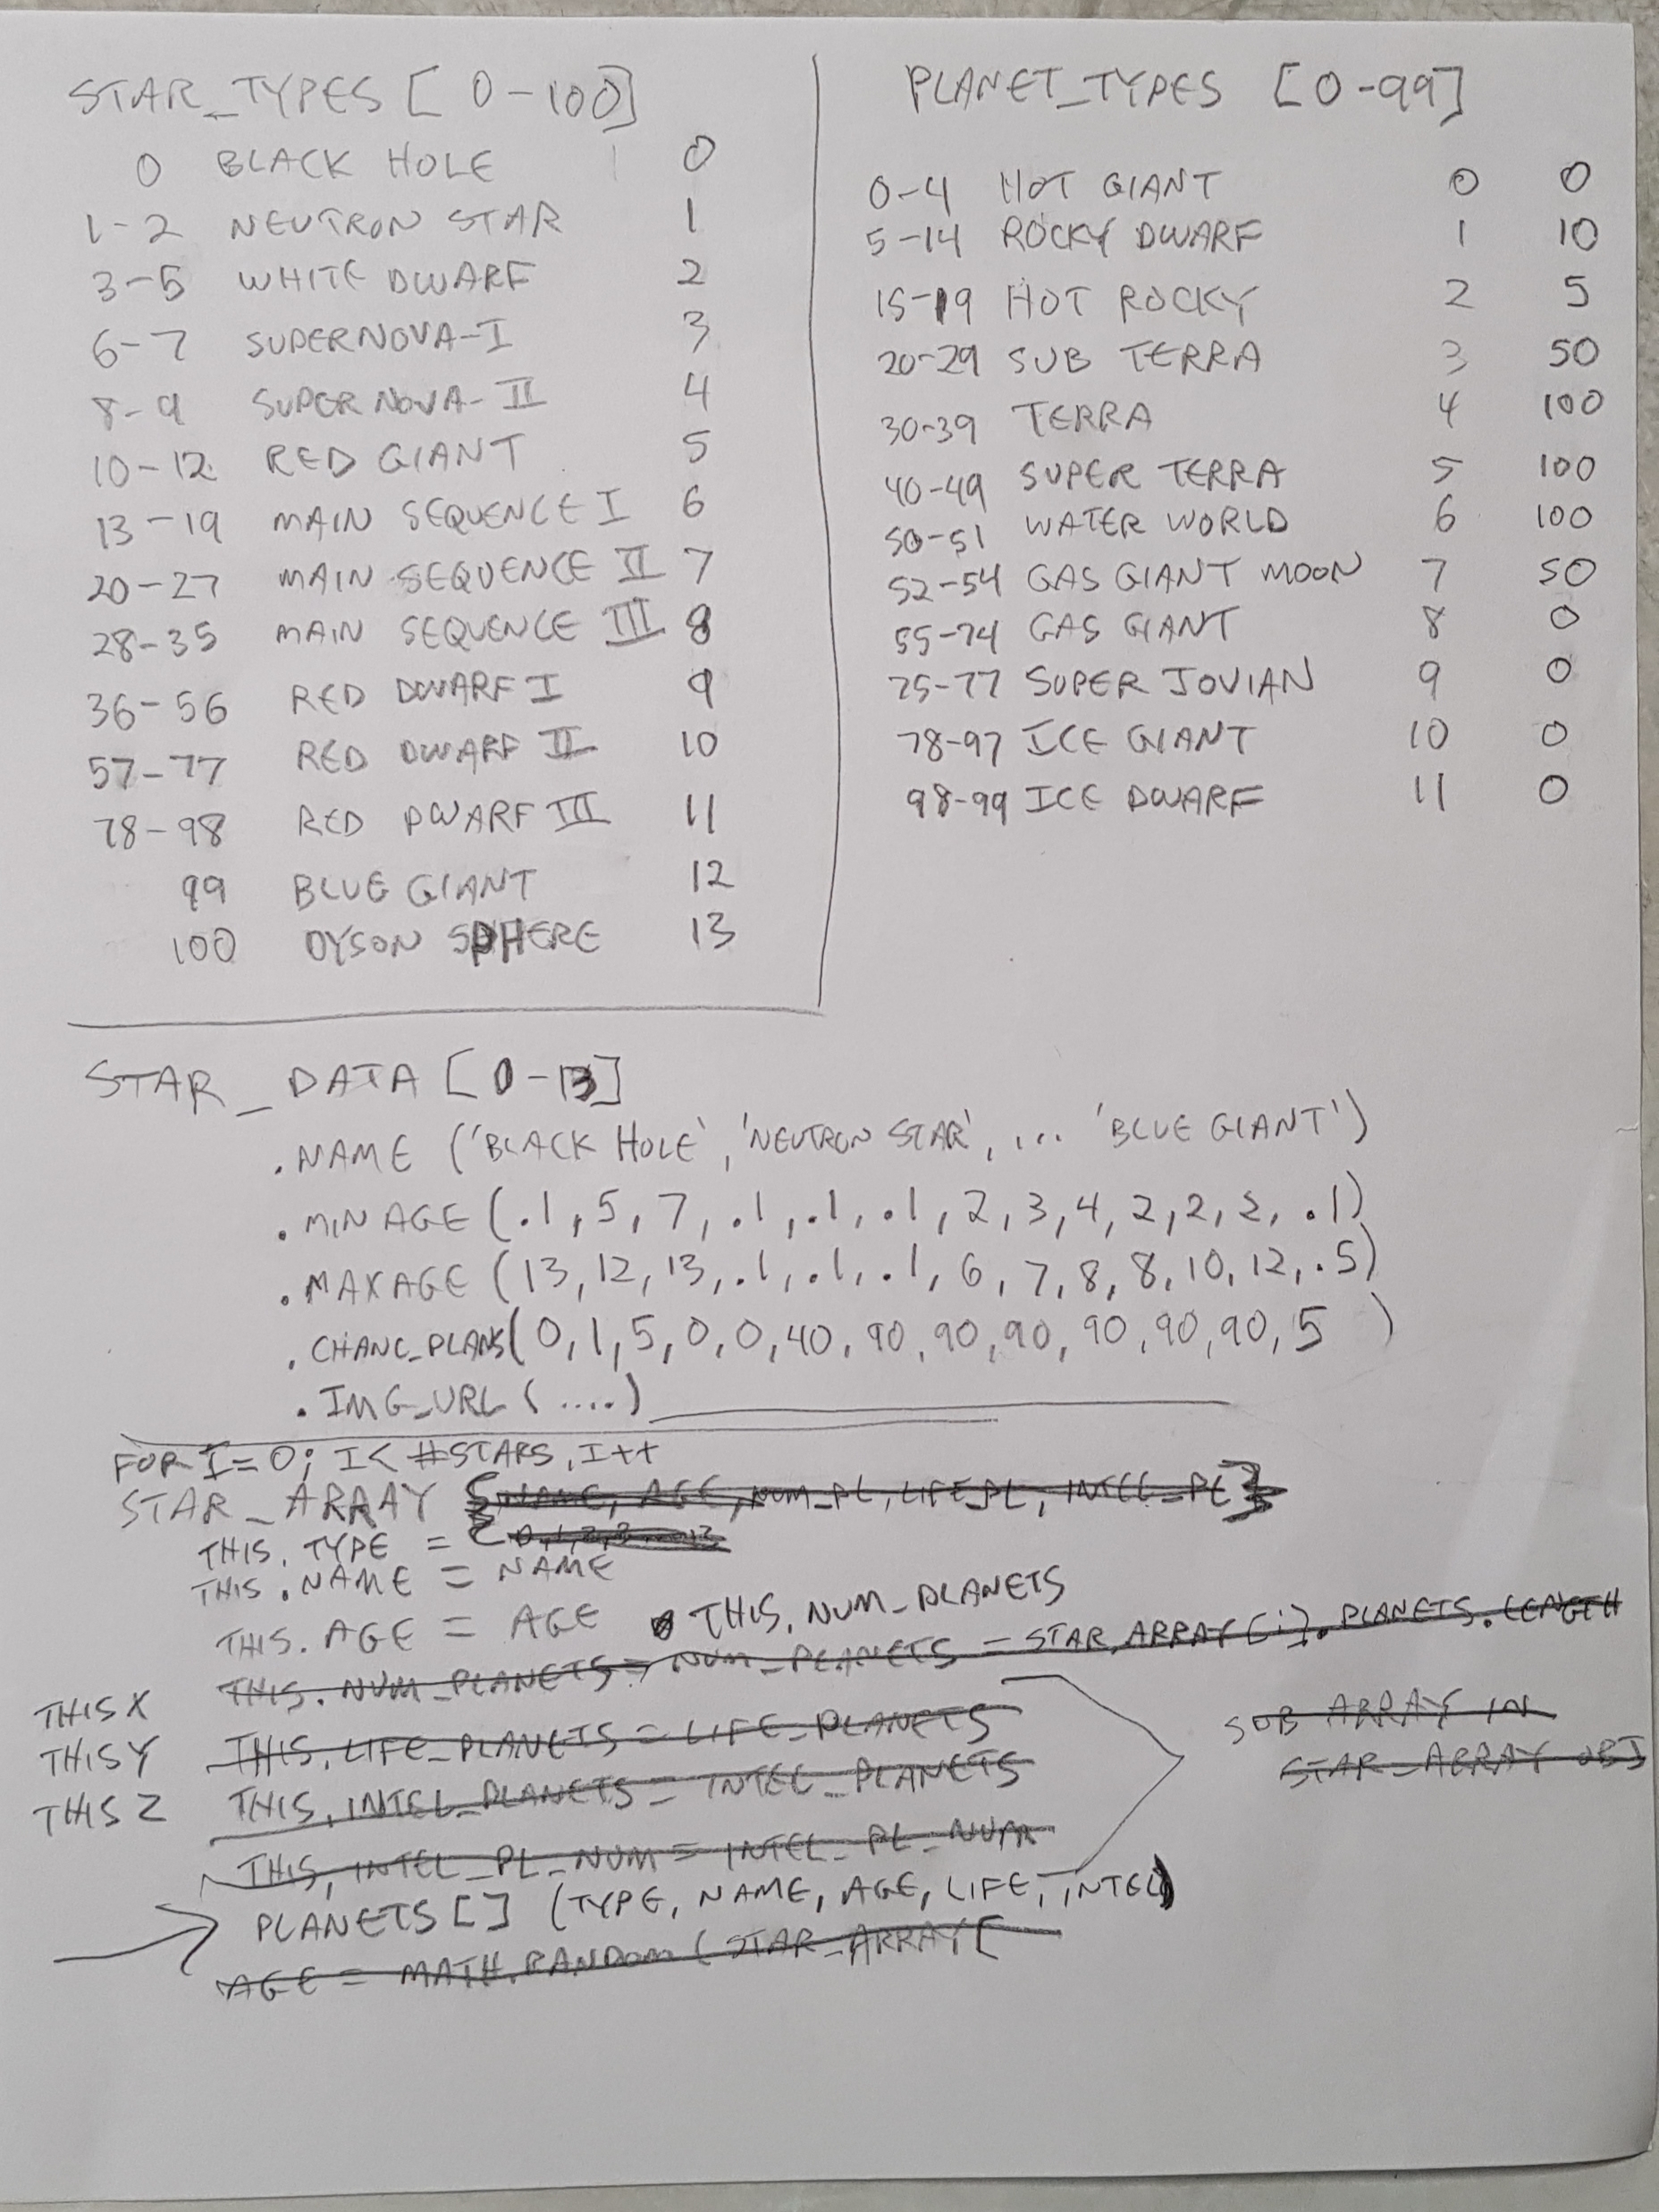 STAR_TYPES [0-100]
0 BLACK HOLE 0
1-2 NEUTRON STAR 1
3-5 WHITE DWARF 2
6-7 SUPERNOVA-I 3
8-9 SUPERNOVA-II 4
10-12 RED GIANT 5
13-19 MAIN SEQUENCE I 6
20-27 MAIN SEQUENCE II 7
28-35 MAIN SEQUENCE III 8
36-56 RED DWARF I 9
57-77 RED DWARF II 10
78-98 RED DWARF III 11
99 BLUE GIANT 12
100 DYSON SPHERE 13
PLANET_TYPES [0-99]
0-4 HOT GIANT 0 0
5-14 ROCKY DWARF 1 10
15-19 HOT ROCKY 2 5
20-29 SUB TERRA 3 50
30-39 TERRA 4 100
40-49 SUPER TERRA 5 100
50-51 WATER WORLD 6 100
52-54 GAS GIANT MOON 7 50
55-74 GAS GIANT 8 0
75-77 SUPER JOVIAN 9 0
78-97 ICE GIANT 10 0
98-99 ICE DWARF 11 0
STAR_DATA [0-13]
.NAME ('BLACK HOLE', 'NEUTRON STAR', ... 'BLUE GIANT')
.MINAGE (.1, 5, 7, .1, .1, .1, 2, 3, 4, 2, 2, 2, .1)
.MAXAGE (13, 12, 13, .1, .1, .1, 6, 7, 8, 8, 10, 12, .5)
.CHANC_PLANS (0, 1, 5, 0, 0, 40, 90, 90, 90, 90, 90, 90, 5 )
.IMG_URL (....)
FOR I=0; I< #STARS, I++
STAR_ARRAY {NAME, AGE, NUM_PL, LIFE_PL, INTEL_PL}
THIS.TYPE = {0,1,2,3...13
THIS.NAME = NAME
THIS.AGE = AGE THIS.NUM_PLANETS
THIS.NUM_PLANETS = NUM_PLANETS = STAR_ARRAY[i].PLANETS.LENGTH
THIS X THIS.LIFE_PLANETS = LIFE_PLANETS
THIS Y THIS.INTEL_PLANETS = INTEL_PLANETS
THIS Z THIS.INTEL_PL_NUM = INTEL_PL_NUM
SUB ARRAY IN
STAR_ARRAY OBJ
PLANETS [] (TYPE, NAME, AGE, LIFE, INTEL)
AGE = MATH.RANDOM (STAR_ARRAY[